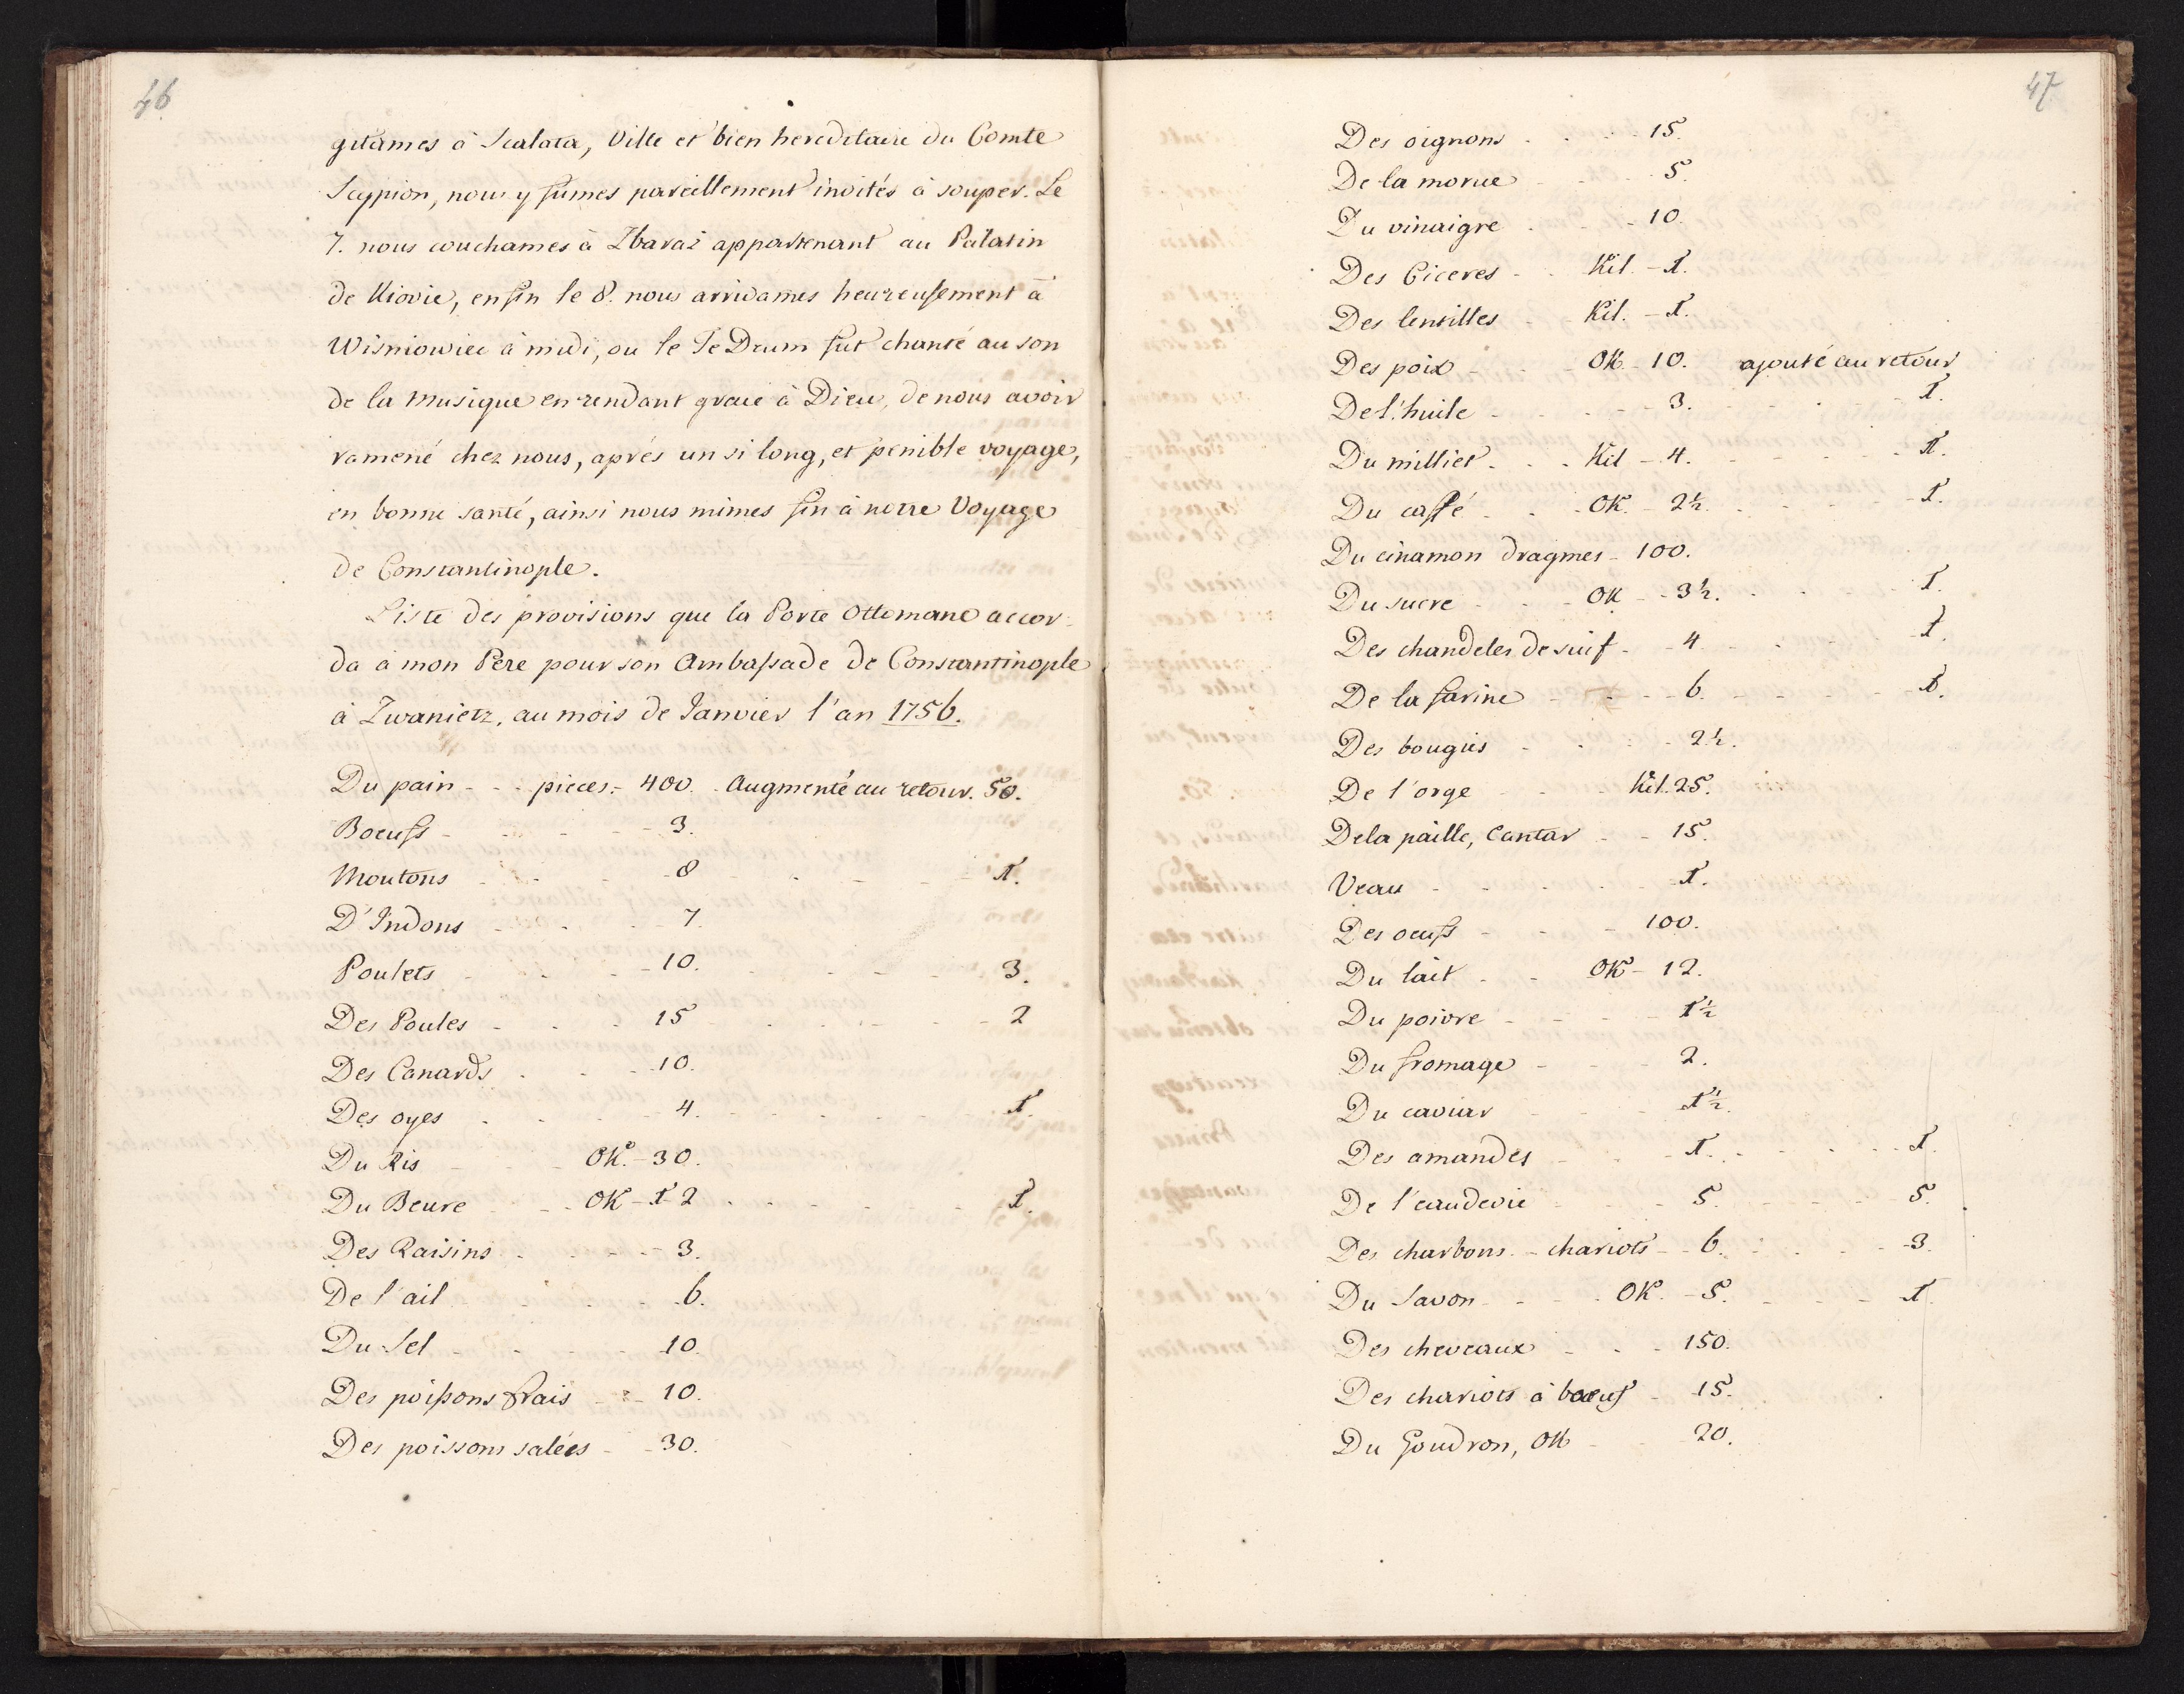 46
gitames à Scalata, Ville et bien hereditaire du Comte
Scypion, nous y fumes pareillement invités à souper. Le
7. nous couchames à Zbaraż appartenant au Palatin
de Kiovie, enfin le 8. nous arrivames heureusement à
Wisniowiec à midi, ou le Te Deum fut chanté au son
de la musique en rendant grace à Dieu, de nous avoir
ramené chez nous, aprés un si long, et penible voyage,
en bonne santé, ainsi nous mimes fin à notre Voyage
de Constantinople.
Liste des provisions que la Porte Ottomane accor-
da à mon Pere pour son Ambassade de Constantinople
à Zwanietz, au mois de Janvier l'an 1756.
Du pain - - - pieces - 400. Augmenté au retour. 50.
Boeufs - - - - 3.
Moutons - - - - 8 - - - - 1.
D'Indons - - - - 7.
Poulets - - - - 10. - - - - 3.
Des Poules - - - - 15 - - - - 2
Des Canards - - - - 10.
Des oyes - - - - 4. - - - - 1.
Du Ris - - - OK. - 30.
Du Beure - - - OK - 12 - - - - 1.
Des Raisins - - - - 3.
De l'ail - - - - 6.
Du Sel - - - - 10.
Des poissons frais - - 10.
Des poissons salées - - 30.
47
Des oignons - - - - 15.
De la morue - - - 5.
Du vinaigre - - - 10.
Des Ciceres - - Kil. - 1.
Des lentilles - - Kil. - 1.
Des poix - - - OK - 10. ajouté au retour
De l'huile - - - - 3. - - - - 1.
Du milliet - - - Kil - 4. - - - - 1.
Du caffé - - - OK. - 2½. - - - - 1.
Du cinamon dragmes - 100.
Du sucre - - - OK - - 3½. - - - - 1.
Des chandeles de suif - - 4 - - - - 1.
De la farine - - - - 6. - - - - 1.
Des bougies - - - - 2½.
De l'orge - - - Kil. 25.
De la paille, Cantar - - 15.
Veau - - - - 1.
Des oeufs - - - - 100.
Du lait - - OK - 12.
Du poivre - - - - 1½
Du fromage - - - 2.
Du caviar - - - 1½.
Des amandes - - - 1. - - - - 1.
De l'eaudevie - - - 5. - - - - 5.
Des charbons - chariots - - 6. - - - - 3.
Du Savon - - - OK. - 5. - - - - 1.
Des cheveaux - - - 150.
Des chariots à boeuf - 15.
Du Goudron, OK - - 20.